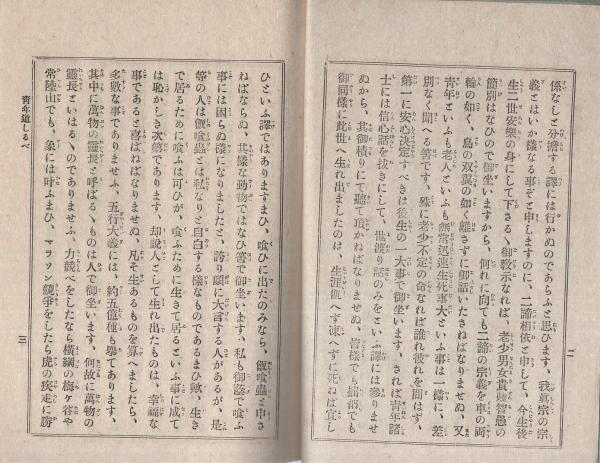 係なしと分擔する譯には行かぬのであらふと思ひます、我眞宗の宗
義とはいか樣なる事ぞと申しますのに、二諦相依と申して、今生後
生二世安樂の身にして下さるゝ御敎示なれば、老少男女貴賤智愚の
簡別はなひので御坐いますから、何れに向ても二諦の宗義を車の兩
輪の如く、鳥の双翼の如く離さずに御話いたさねばなりませぬ、又
靑年といふも老人といふも無常迅速生死事大といふ事は一樣に、差
別なく聞へる筈です、殊に老少不定の命なれば誰れ彼れを問はず、
第一に安心決定すべきは後生の一大事で御坐います、されば靑年諸
士には信心話を拔きにして、世渡り話のみをといふ譯には參りませ
ぬから、其御積りにて聽て頂かねばなりませぬ、皆樣でも拙僧でも
御同樣に此世へ生れ出ましたのは、生涯飢へず凍へずに死ねば宜し
二
ひといふ譯ではありますまひ、喰ひに出たのみなら、飯喰蟲と申さ
ねばならぬ、其樣な動物ではなひ筈で御坐います、私も御蔭で喰ふ
事には困らぬ樣になりましたと、誇り顏に大言する人があるが、是
等の人は飯喰蟲とは私なりと自白する樣なものであるまひ歟、生き
て居るために喰ふは可ひが、喰ふために生きて居るといふ事に成て
は恥かしき次第であります、却說人として生れ出たものは、幸福な
事であると喜ばねばなりませぬ、凡そ生あるものを算へましたら、
多數な事でありませふ、五行大義には、約五億種も擧てあります、
其中に萬物の靈長と呼ばるゝものは人で御坐います、何故に萬物の
靈長といはるゝのでありませふ、力競べをしたなら橫綱の梅ケ谷や
常陸山でも、象には叶ふまひ、マラソン競爭をしたら虎の疾走に勝
靑年道しるべ
三